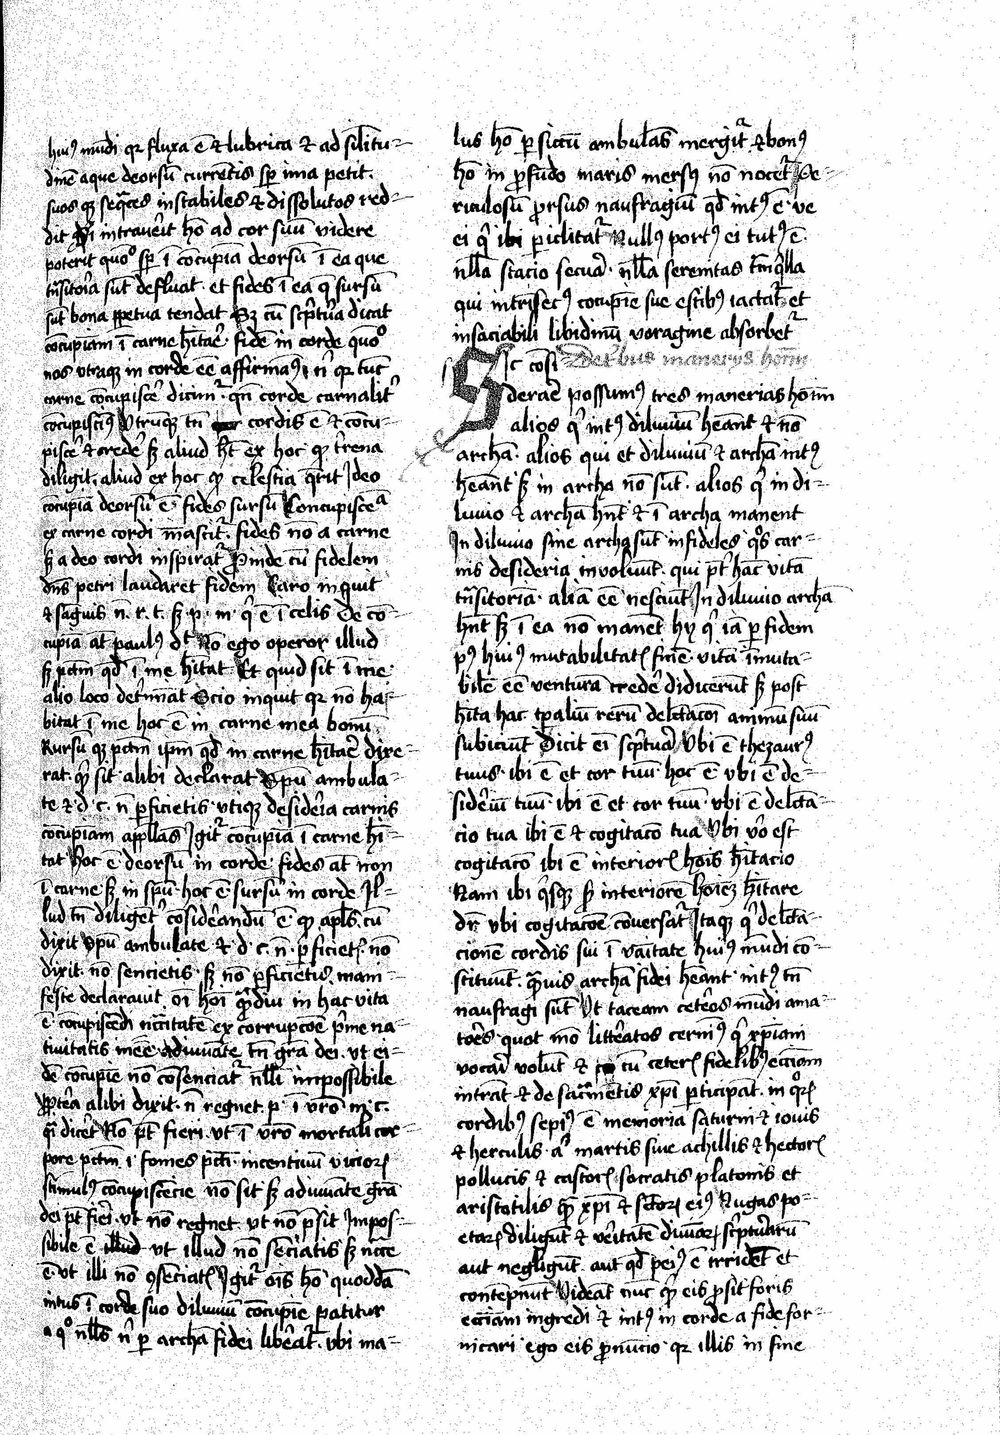 hui9 mūdi qr fluxa ē & lubrica & ad silitu-
dinē aque deorsū currētis sp ima petit.
suos q3 seqces instabiles & dissolutos red-
dit Qi intraverit hō ad cor suū videre
poterit quōo sp ī cōcupīa deorsū ī ea que
tnsitoria sūt defluat et fides ī ea q sursū
sūt bona ppetua tendat S3 cū scptura dicat
cōcupiam ī carne hitare fidē in corde quōo
nos utraq3 in corde eē affirmam9 ni qr tūc
carne cōcupiscē dicimr qn corde carnalitr
cōcupiscim9 Utrūq3 tn cordis ē & cōcu-
piscē & credē s3 aliud ht ex hoc qp trena
diligit, aliud ex hoc qp celestia qrit Ideo
cōcupīa deorsū ē fides sursū Concupiscēa
ex carne cordi nascitr fides nō a carne
s3 a deo cordi inspiratr Proinde cū fidelem
dns petri laudaret fidem Caro inquit
& saguis n. r. t. s3 p. m. q ē ī celis De cō-
cupīa at paul9 dt Nō ego operor illud
s3 pctm qd ī me hitat Et quid sit ī me
alio loco detminat Scio inquit qr nō ha-
bitat ī me hoc ē in carne mea bonū
Rursu q3 pctm ipm qd in carne hitare dixe-
rat qd sit alibi declarat Spu ambula-
te & d. c. n pficietis utiq3 desideria carnis
cōcupiam appllas Igitr cōcupīa ī carne hi-
tat hoc ē deorsū in corde fides at non
ī carne s3 in spu hoc ē sursū in corde Il-
lud tn diligetr cōsiderandū ē qp apls cū
dixit spu ambulate & d. c. n. pficietis nō
dixit nō sencietis s3 nō pficietis mani-
feste declaravit oī hoī qmdiu in hac vita
ē cōcupiscēdi ncitatē ex corrupcōe pme na-
tivitatis ineē adiuuāte tn gra dei. ut ei-
dē cōcupie nō cōsenciatr nlli impossibile
Pptea alibi dixit n regnet p. ī vro m. c.
q diceret Nō pt fieri ut ī vro mortali cor-
pore pctm i fomes pcti incentivū vicior
stimul9 cōcupiscēcie nō sit s3 adiuuāte gra
dei pt fieri ut nō regnet ut nō psit Impos-
sibile ē ut illud nō senciatis s3 ncce
ē ut illi nō 9senciatis Igitr ois hō quoddā
intus ī corde suo diluviū cōcupie patitur
a qo nlls ni p archā fidei liberatr ubi ma-
lus hō p siccū ambulās mergitr & bon9
hō in pfūdo maris mers9 nō nocetr Pe-
riculosū prorsus naufragiū qd int9 ē ve
ei qi ibi piclitatr Null9 port9 ei tut9 ē
nlla stacio secura nlla serenitas tnqlla
qui intrisec9 cōcupie sue estib9 iactatr et
insaciabili libidinū voragine absorbetr
Sic cōsi De trib9 manerys hoīm
derare possum9 tres manerias hoīm
alios qi int9 diluviū heant & nō
archā. alios qui et diluviū & archā int9
heant s3 in archa nō sūt. alios qi in di-
luvio & archā hnt & ī archa manent
In diluvio sine archa sūt infideles qos car-
nis desideria involvūt. qui pt hac vitā
tnsitoriā aliā eē nesciūt In diluvio archā
hnt s3 ī ea nō manet hy qi iā p fidem
p9 hui9 mutabilitatis finē vitā īmuta-
bilē eē venturā crede didicerūt s3 post
hita hac tpaliū rerū delctacoi animū suū
subiciūt Dicit ei scptura Ubi ē thezaur9
tuus ibi ē et cor tuū hoc ē ubi ē de-
sideriū tuū ibi ē et cor tuū ubi ē delcta-
cio tua ibi ē & cogitacō tua Ubi vo est
cogitacō ibi ē interioris hois hitacio
Nam ibi qisq3 sm interiorē hoiez hitare
dr ubi cogitacōe cōversatr Itaq3 qi delcta-
cionē cordis sui ī vanitate hui9 mūdi cō-
stituūt. qmuis archā fidei heant int9 tn
naufragi sūt Ut taceam ceteros mūdi ama-
tores quot mō litteratos cernim9 qi xpiani
vocari volūt & cū ceteris fidelib9 ecciam
intrāt & de sacrmetis xpi pticipāt. in qor
cordib9 sepi9 ē memoria saturni & iovis
& herculis ar martis sive achillis & hectoris
pollucis & castoris socratis platonis et
aristotilis qm xpi & sctor ei9 Nugas po-
etar diligūt & veritatē divinar scpturarū
aut negligūt. aut qd pei9 ē irridēt et
contēpnūt Videāt nūc qd eis psit foris
ecciam ingredi & int9 in corde a fide for-
nicari ego eis pnūcio qr illis in fine